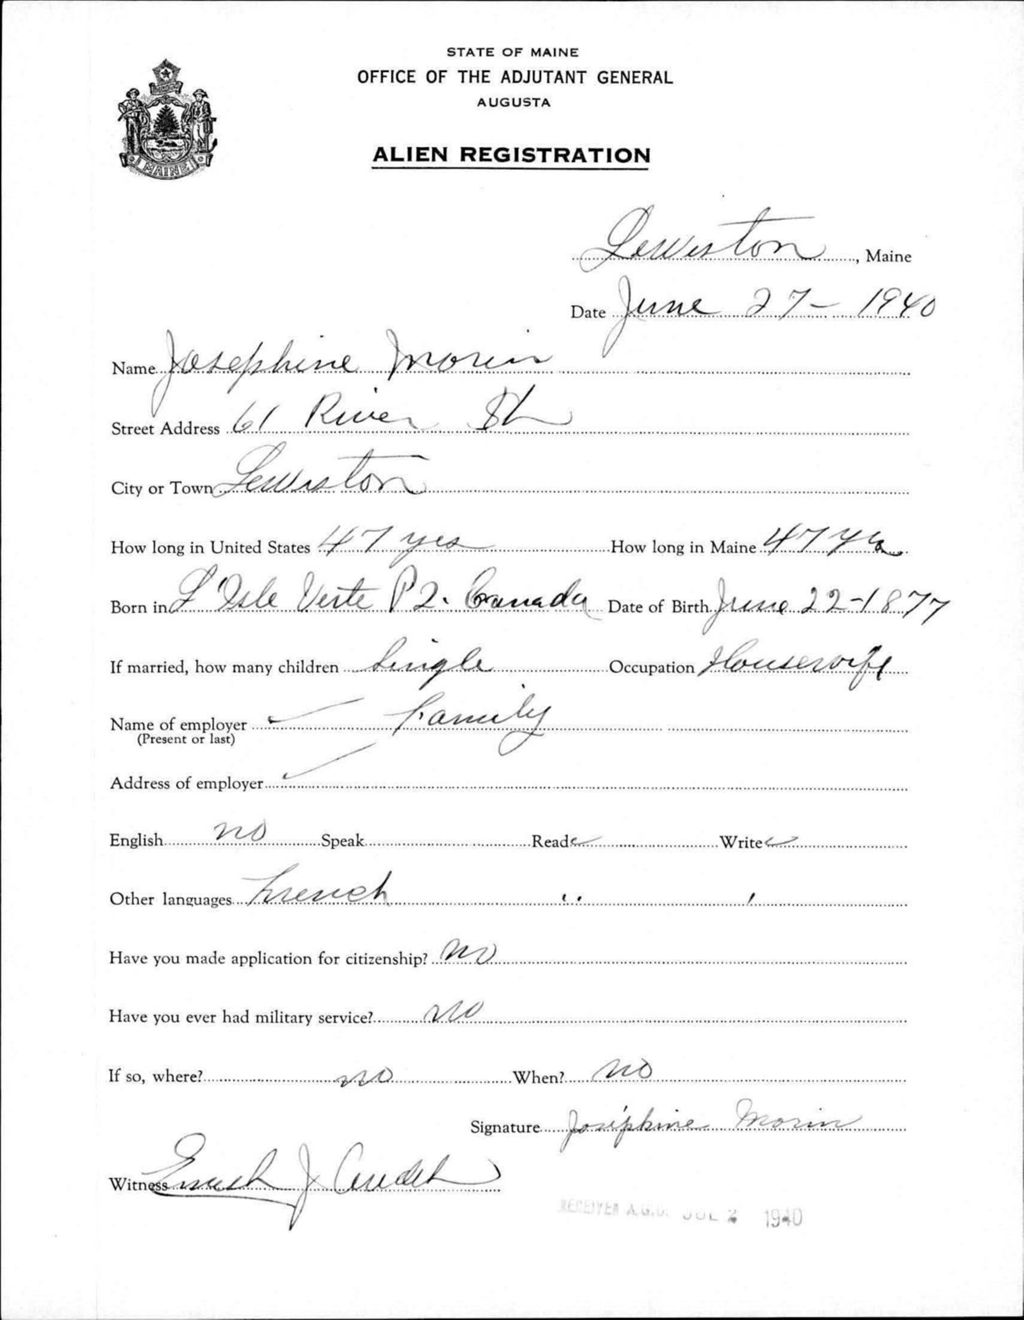 STATE OF MAINE
OFFICE OF THE ADJUTANT GENERAL
AUGUSTA
ALIEN REGISTRATION
MAINE
Lewiston, Maine
Date June 27 - 1940
Name Josephine Morin
Street Address 61 River St
City or Town Lewiston
How long in United States 47 yrs How long in Maine 47 yrs
Born in L'Isle Verte P2. Canada Date of Birth June 22-1877
If married, how many children Single Occupation Housewife
Name of employer Family
(Present or last)
Address of employer
English no Speak Read Write
Other languages French " "
Have you made application for citizenship? No
Have you ever had military service? No
If so, where? no When? No
Signature Joséphine Morin
Witness J Audet
RECEIVED A.G.O. JUL 2 1940